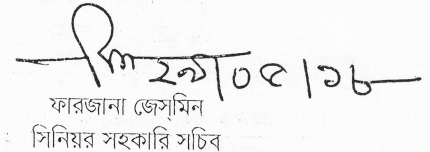 ২৯|০৫|১৮
ফারজানা জেস্‌মিন
সিনিয়র সহকারি সচিব